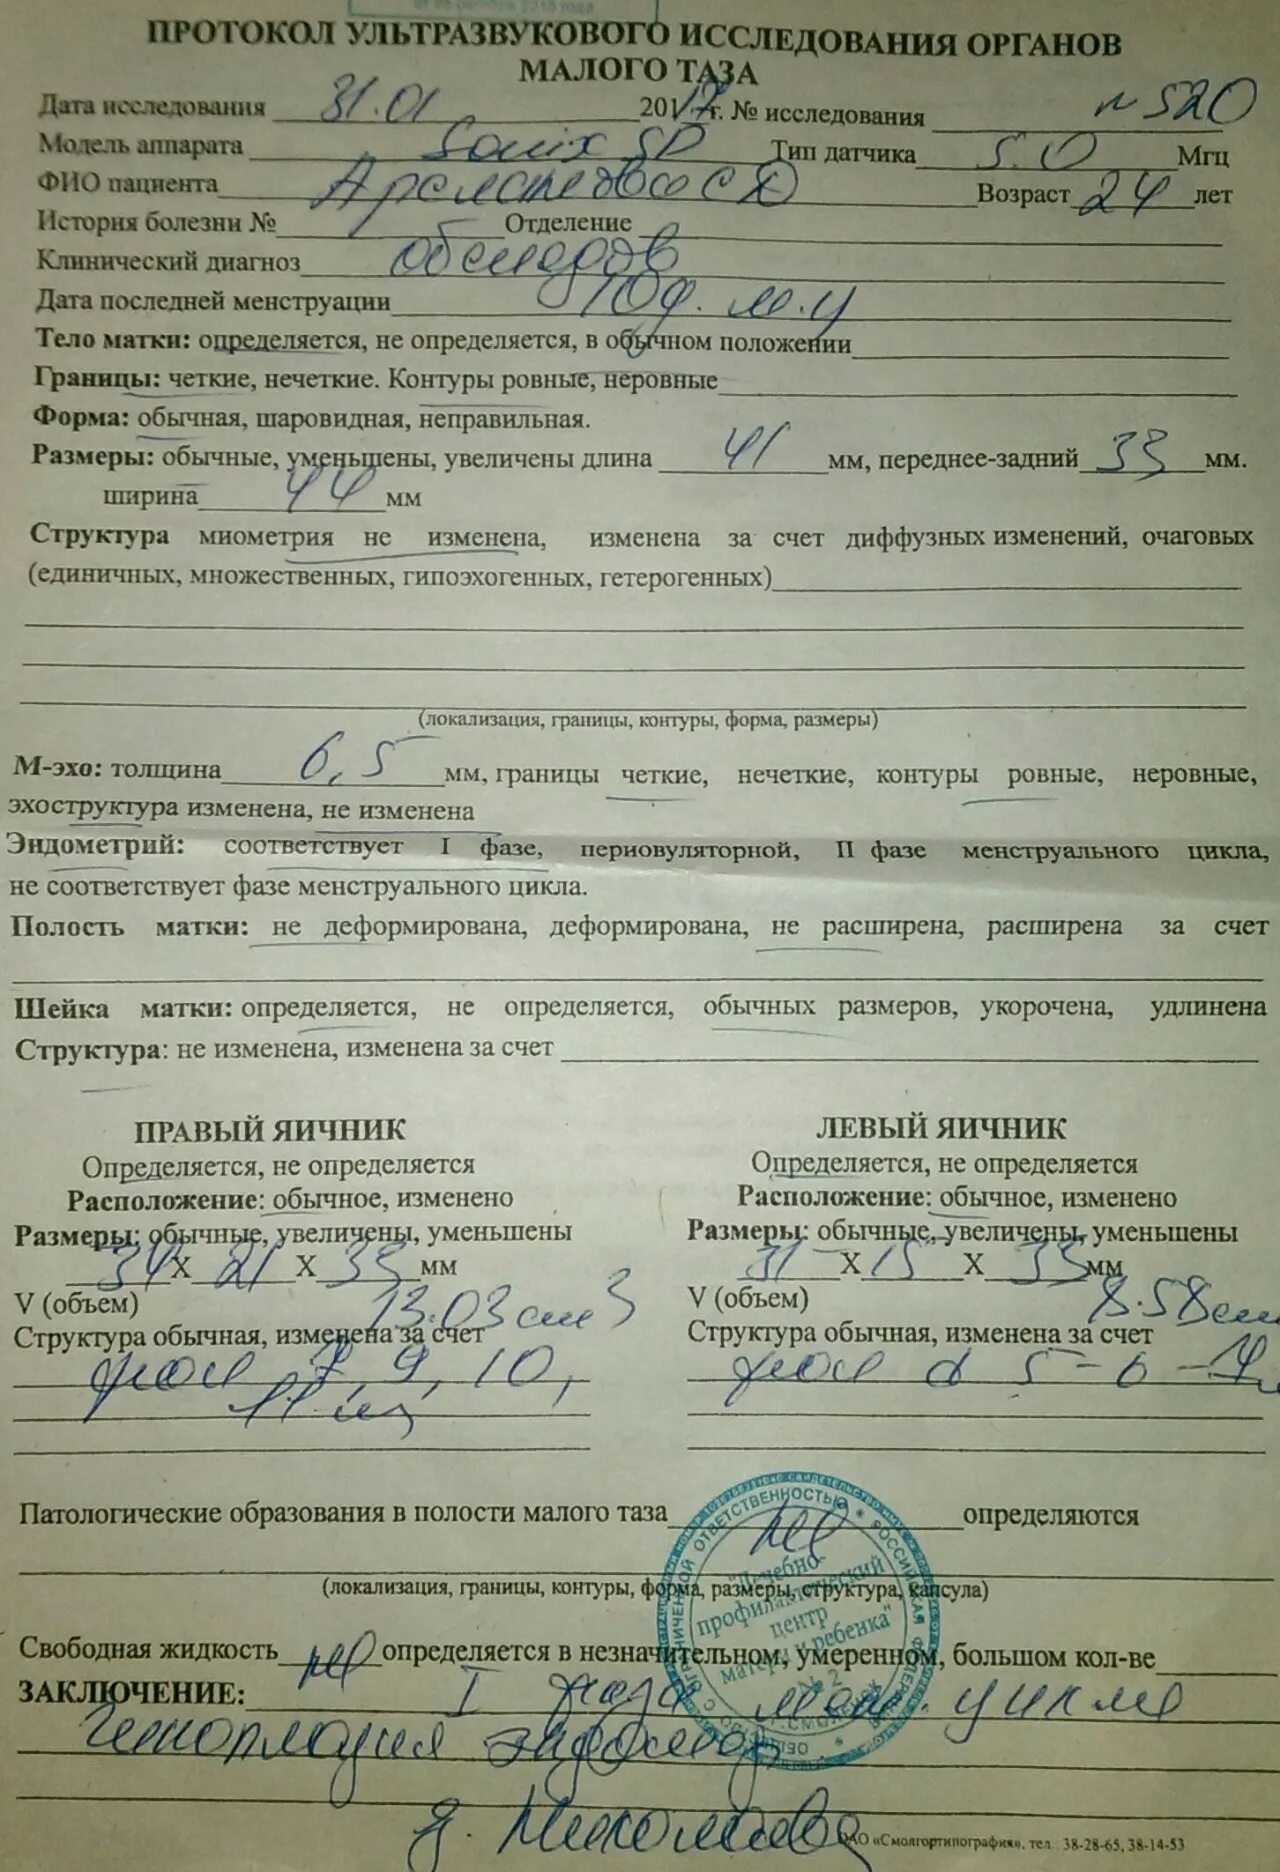 ПРОТОКОЛ УЛЬТРАЗВУКОВОГО ИССЛЕДОВАНИЯ ОРГАНОВ
МАЛОГО ТАЗА
Дата исследования 31.01 2017г. № исследования ~ 520
Модель аппарата Sonix SP Тип датчика 5.0 Мгц
ФИО пациента Возраст 24 лет
История болезни № Отделение
Клинический диагноз обследов
Дата последней менструации 10 д. м. ц
Тело матки: определяется, не определяется, в обычном положении
Границы: четкие, нечеткие. Контуры ровные, неровные
Форма: обычная, шаровидная, неправильная.
Размеры: обычные, уменьшены, увеличены длина 41 мм, переднее-задний 33 мм.
ширина 44 мм
Структура миометрия не изменена, изменена за счет диффузных изменений, очаговых
(единичных, множественных, гипоэхогенных, гетерогенных)
(локализация, границы, контуры, форма, размеры)
М-эхо: толщина 6,5 мм, границы четкие, нечеткие, контуры ровные, неровные,
эхоструктура изменена, не изменена
Эндометрий: соответствует I фазе, периовуляторной, II фазе менструального цикла,
не соответствует фазе менструального цикла.
Полость матки: не деформирована, деформирована, не расширена, расширена за счет
Шейка матки: определяется, не определяется, обычных размеров, укорочена, удлинена
Структура: не изменена, изменена за счет
ПРАВЫЙ ЯИЧНИК
Определяется, не определяется
Расположение: обычное, изменено
Размеры: обычные, увеличены, уменьшены
34 X 21 X 35 мм
V (объем) 13.03 cm3
Структура обычная, изменена за счет
фол 7, 9, 10,
11 мм
ЛЕВЫЙ ЯИЧНИК
Определяется, не определяется
Расположение: обычное, изменено
Размеры: обычные, увеличены, уменьшены
31 X 15 X 35 мм
V (объем) 8.58 cm
Структура обычная, изменена за счет
фол d 5-6-7
Патологические образования в полости малого таза не определяются
(локализация, границы, контуры, форма, размеры, структура, капсула)
Свободная жидкость не определяется в незначительном, умеренном, большом кол-ве
ЗАКЛЮЧЕНИЕ: I фаза мен. цикла
Гипоплазия эндометр
"Лечебно-
профилактический
центр
матери и ребенка"
№ 2
г. СМОЛЕНСК
ОАО «Смолгортипография», тел. 38-28-65, 38-14-53